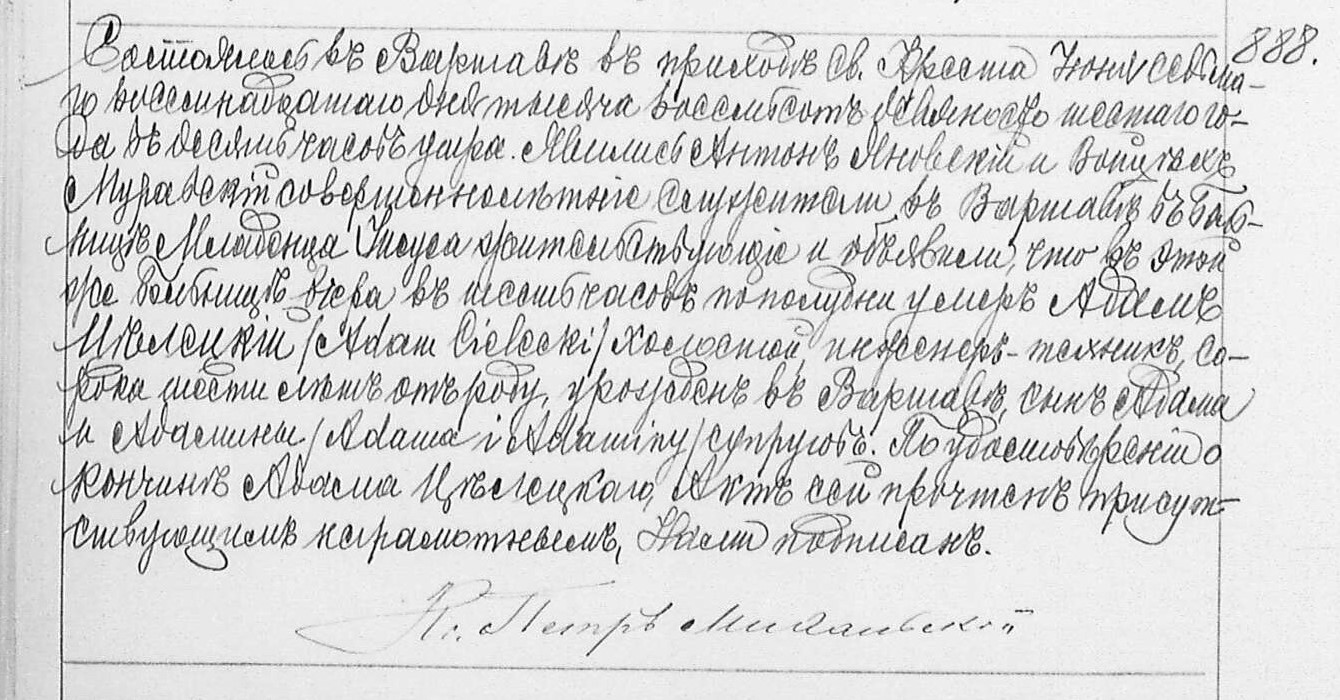 888.
Состоялось въ Варшавѣ въ приходѣ Св. Креста Іюня седьма-
го восемнадцатаго дня тысяча восемьсотъ девяносто шестаго го-
да въ десять часовъ утра. Явились Антонъ Яновскій и Войцѣхъ
Муравскій совершеннолѣтніе служители въ Варшавѣ въ Боль-
ницѣ Младенца Іисуса жительствующіе и объявили, что въ этой
же Больницѣ вчера въ шесть часовъ пополудни умеръ Адамъ
Цѣлецкій /Adam Cielecki/ холостой, инженеръ-техникъ, со-
рока шести лѣтъ отъ роду, урожденъ въ Варшавѣ, сынъ Адама
и Адамины /Adama i Adaminy/ супруговъ. По удостовѣреніи о
кончинѣ Адама Цѣлецкаго, Актъ сей прочтенъ присут-
ствующимъ неграмотнымъ, Нами подписанъ.
Кс. Петръ Михальскій